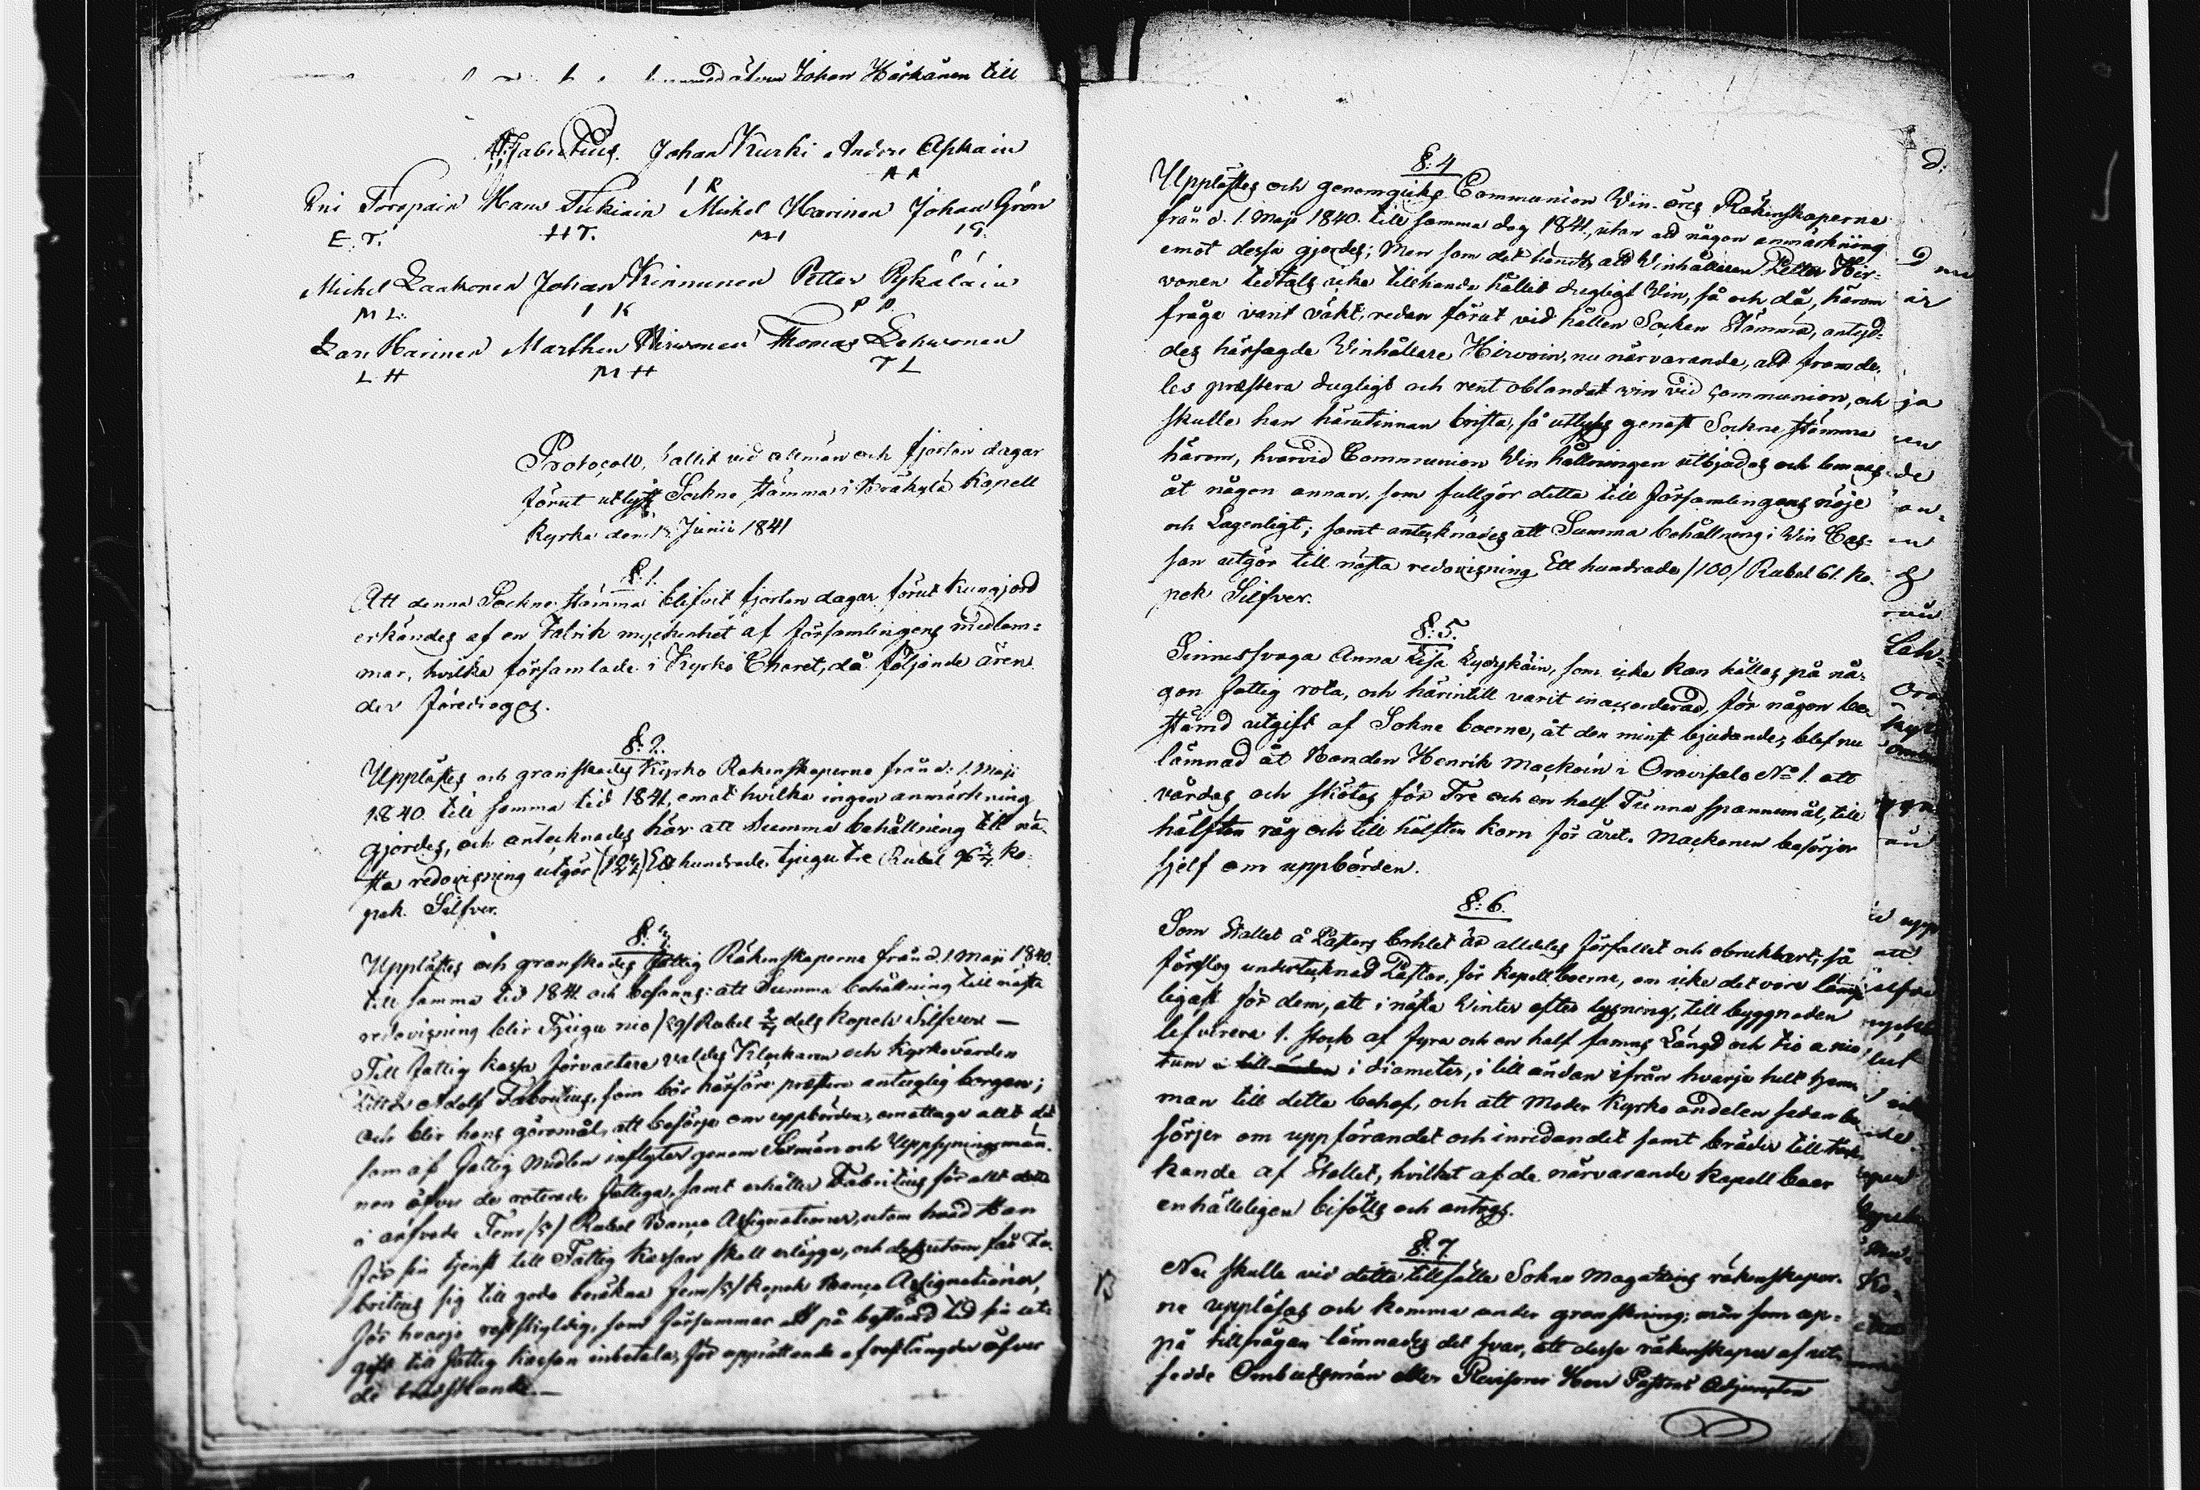 Johan Härkänen till
A. Fabritius. Johan Kurki Anders Asikain
I K A A
Eni Toropain Hans Tukiain Michel Harinen Johan Grön
E. T. H T. M H I G.
Michel Laakonen Johan Kinnunen Petter Rykäläin
M L. I K P R.
Lars Harinen Marthen Hirwonen Thomas Lehwonen
L H M H T L
Protocoll, hållit vid allmän och fjorton dagar
förut utlyst Sockne stämma i Bräkylä Kapell
Kyrka den Junii 1841
§. 1.
Att denna Sockne stämma blifvit fjorton dagar förut kungjord
erkändes af en talrik myckenhet af församlingens medlem:
mar, hvilka församlade i Kyrko Choret, då följande ären:
der föredrogos.
§: 2.
Upplästes och granskades Kyrko Räkenskaperne från d: 1. Maji
1840 till samma tid 1841, emot hvilka ingen anmärkning
gjordes, och antecknades här att Summa behållning till nä:
sta redovisning utgör (123) Ett hundrade tjugu tre Rubel 96 ko:
pek. Silfver.
§: 3.
Upplästes och granskades fattig Räkenskaperna från d. 1 Maji 1840
till samma tid 1841 och befanns: att Summa behållning till nästa
redovisning blir Tjugu nio /29/ Rubel 2/7 dels kopek Silfver —
Till fattig Kassa förvaltare valdes Klockaren och Kyrkovärden
Adolf Fabritius, som bör härföre præstera antaglig borgen;
och blir hans göromål, att besörja om uppbörden, emottaga allt det
som af fattig medlen inflyter genom Sexmän och Uppsyningsmän:
nen öfver de roterade fattiga, samt erhåller Fabritius för allt detta
i arfvode Fem /5/ Rubel Banco Assignationer, utom hvad Han
för sin tjenst till Fattig Kassan skall erlägga, och dessutom får Fa:
britius sig till godo beräkna fem /5/ kopek Banco Assignationer,
för hvarje restskyldig, som försummar att på bestämd tid sin ut:
gift till fattig Kassan inbetala, för upprättande af restlängder öfver
de tredskande. —
§: 4
Upplästes och genomgicks Communion Win-åres Räkenskaperne
från d. 1. Maji 1840. till samma dag 1841, utan att någon anmärkning
emot dessa gjordes; Men som det händt, att Vinhållaren Petter Hir:
vonen tidtals icke tillhanda hållit dugligt Vin, så och då, härom
fråga varit väkt, redan förut vid hållen Socken Stämma, antyd:
des härsagde Vinhållare Hirvoin, nu närvarande, att framde:
les præstera dugligt och rent oblandat win vid Communion, och
skulle han härutinnan brista, så utlyses genast Sockne stämma
härom, hvarvid Communion Win hållningen utbjudes och lemnas
åt någon annan, som fullgör detta till församlingens nöje
och Lagenligt; samt antecknades att Summa behållning i Win Cas:
san utgör till nästa redovisning Ett hundrade /100/ Rubel 61. ko:
pek Silfver.
§: 5.
Sinnessvaga Anna Lisa Kydyskäin, som icke kan hållas på nå:
gon fattig rota, och härintill varit inaccorderad, för någon be:
stämd utgift af Sokne boerne, åt den minst bjudande, blef nu
lämnad åt Bonden Henrik Mackoin i Oravisalo No 1. att
vårdas och skötas för Tre och en half Tunna spannemål, till
hälften råg och till hälften korn för året. Mackonen besörjer
sjelf om uppbörden.
§: 6.
Som Stallet å Pastors bohlet är alldeles förfallet och obrukbart, så
förslog undertecknad Pastor, för kapell boerne, om icke det vore lämp
ligast för dem, att i nästa Winter efter lysning, till byggnaden
lefverera 1. stock af fyra och en half famns Längd och tio a nio
tum i diameter, i lilländan ifrån hvarje helt hem:
man till detta behof, och att Moder Kyrko andelen sedan be:
sörjer om uppförandet och inredandet samt bräder till täc:
kande af Stallet, hvilket af de närvarande kapell boer
enhälleligen bifölls och antogs.
§: 7.
Nu skulle vid detta tillfälle Sokne Magatzins räkenskaper:
ne uppläsas och komma under granskning; men som up:
på tillfrågan lämnades det svar, att dessa räkenskaper af ut:
sedde Ombudsmän eller Revisorer Herr Pastors Adjuncten